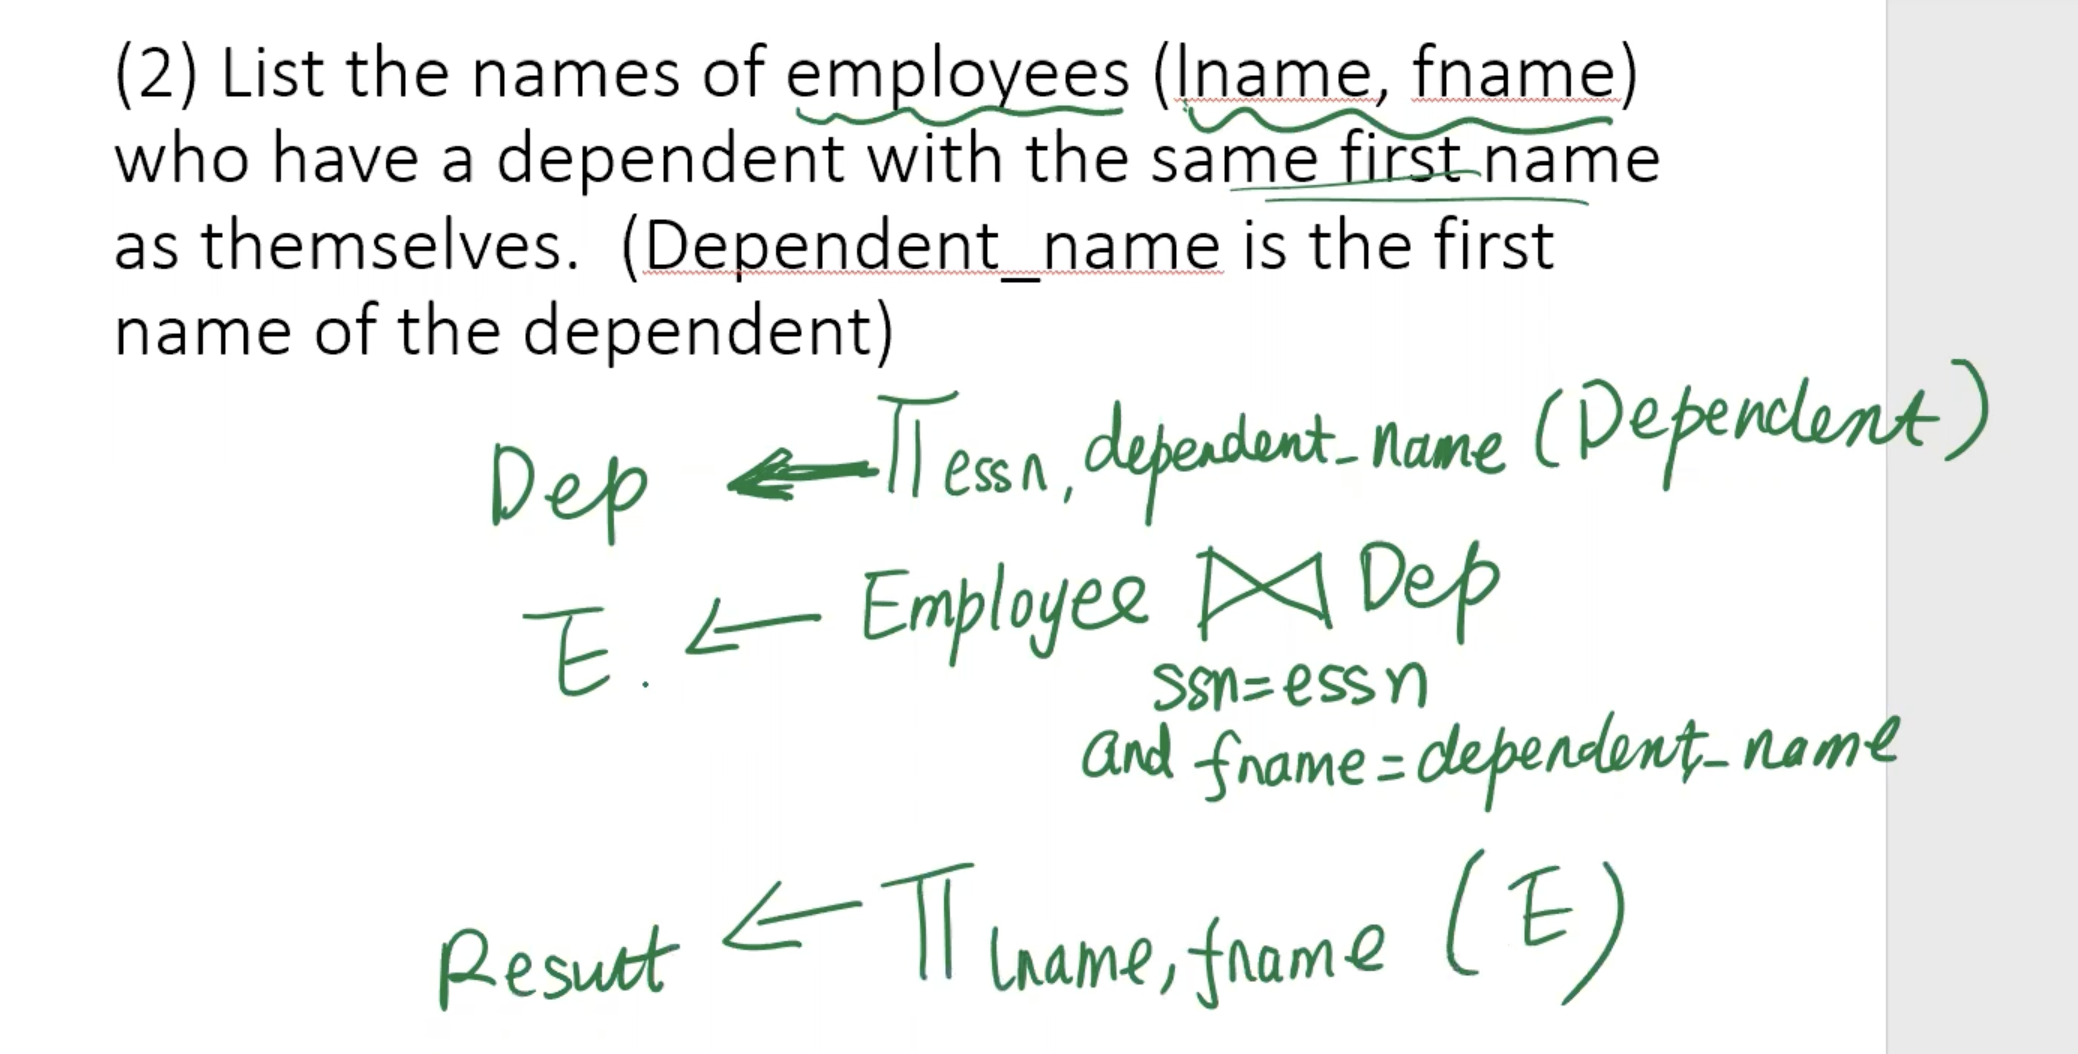 (2) List the names of employees (lname, fname)
who have a dependent with the same first name
as themselves. (Dependent_name is the first
name of the dependent)
Dep ← π essn, dependent_name (Dependent)
E. ← Employee ⋈ Dep
ssn=essn
and fname=dependent_name
Result ← π lname, fname (E)